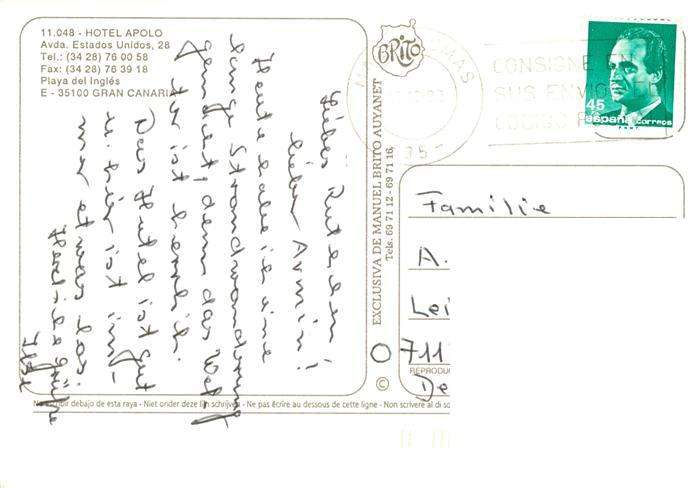 11.048 - HOTEL APOLO
Avda. Estados Unidos, 28
Tel.: (34 28) 76 00 58
Fax: (34 28) 76 39 18
Playa del Inglés
E - 35100 GRAN CANARIA
Liebes Rutchen!
lieber Armin!
Heute habe ich eine
lange Strandwanderung
gemacht, denn das Wet-
ter ist herrlich.
Das Hotel ist gut
u. hier ist im-
mer etwas los.
Herzliche Grüße
Ilse
BRITO
EXCLUSIVA DE MANUEL BRITO AUYANET
Tels. 69 71 12 - 69 71 16
CONSIGNE
SUS ENVIO
CODIGO P
35
45
España correos
Familie
A.
Lei
O 711
REPRODU
De
©
No escribir debajo de esta raya - Niet onder deze lijn schrijven - Ne pas écrire au dessous de cette ligne - Non scrivere al di so